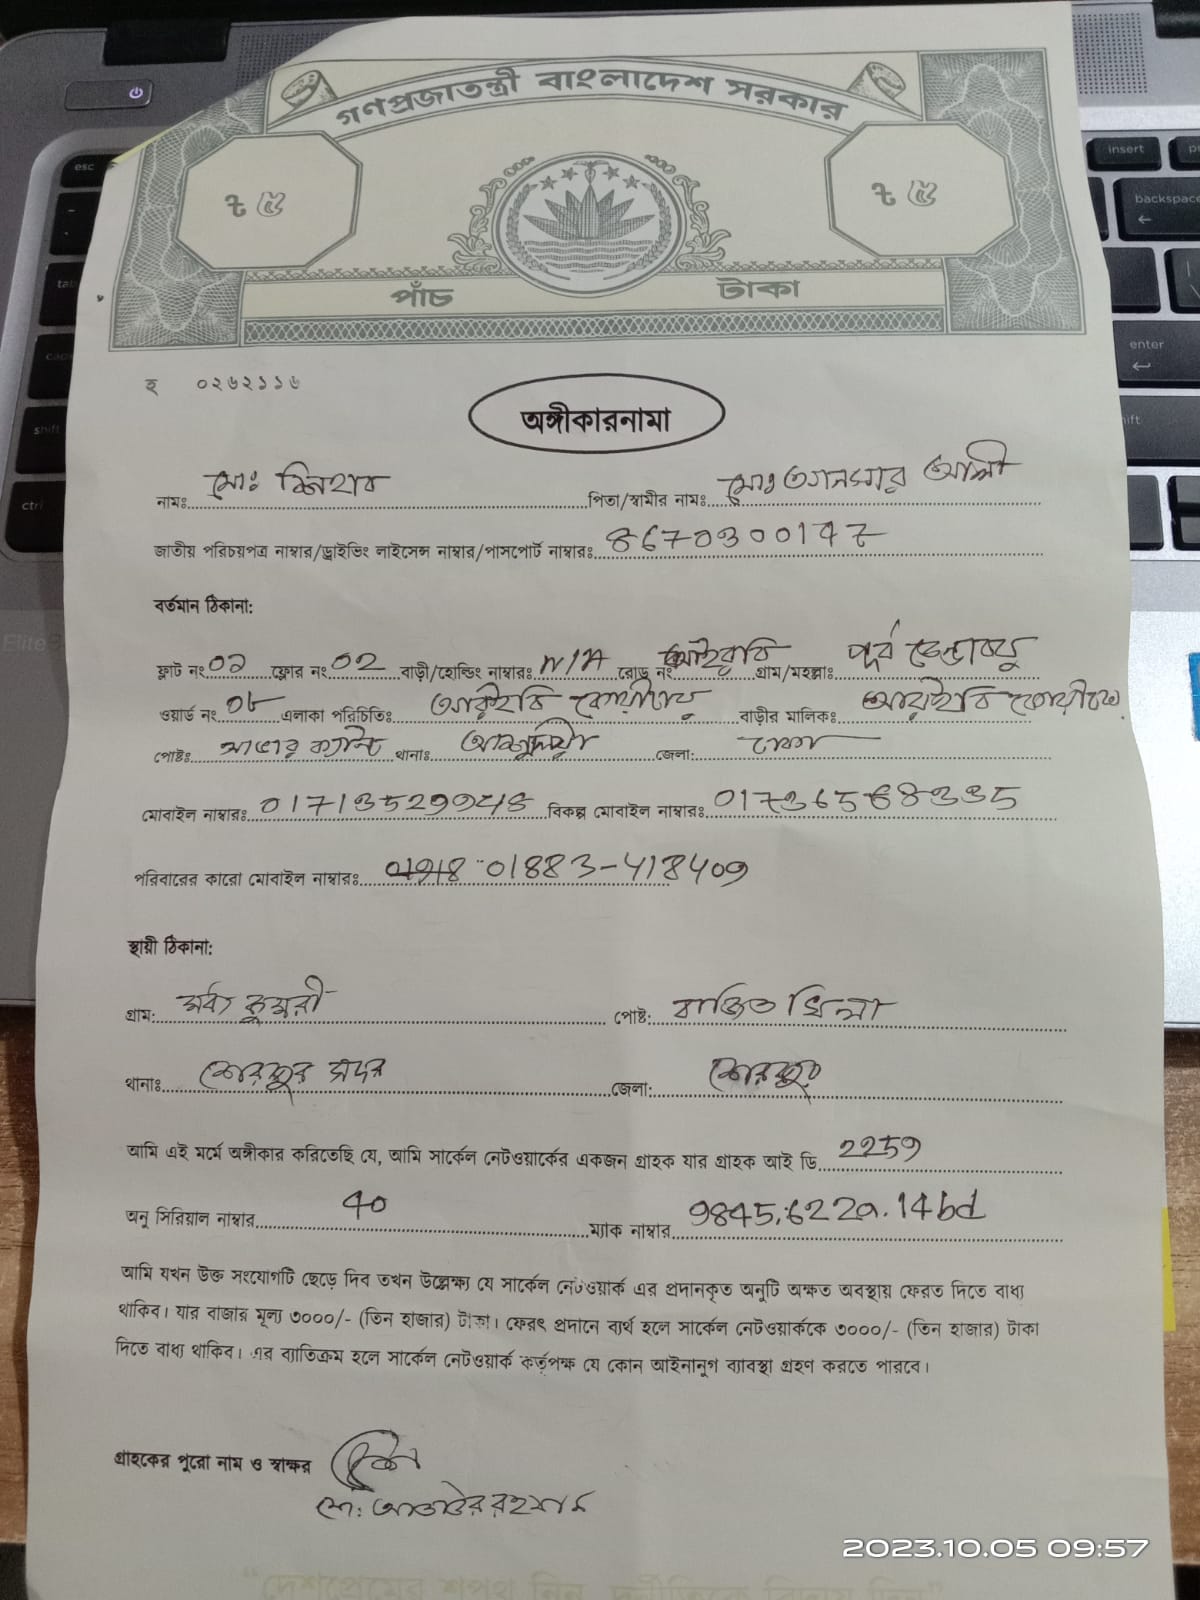 গণপ্রজাতন্ত্রী বাংলাদেশ সরকার
৳ ৫
৳ ৫
পাঁচ টাকা
হ ০২৬২১১৬
অঙ্গীকারনামা
নামঃ মোঃ শিহাব পিতা/স্বামীর নামঃ মোঃ আনসার আলী
জাতীয় পরিচয়পত্র নাম্বার/ড্রাইভিং লাইসেন্স নাম্বার/পাসপোর্ট নাম্বারঃ
বর্তমান ঠিকানা:
ফ্লাট নং 02 ফ্লোর নং 02 বাড়ী/হোল্ডিং নাম্বারঃ N/A রোড নং গ্রাম/মহল্লাঃ পূর্ব
ওয়ার্ড নং 08 এলাকা পরিচিতিঃ বাড়ীর মালিক:
পোষ্টঃ সাভার ক্যান্ট থানাঃ আশুলিয়া জেলা: ঢাকা
মোবাইল নাম্বারঃ বিকল্প মোবাইল নাম্বারঃ
পরিবারের কারো মোবাইল নাম্বারঃ 01883-418409
স্থায়ী ঠিকানা:
গ্রাম: পোষ্ট: বাজিত খিলা
থানাঃ শেরপুর সদর জেলা: শেরপুর
আমি এই মর্মে অঙ্গীকার করিতেছি যে, আমি সার্কেল নেটওয়ার্কের একজন গ্রাহক যার গ্রাহক আই ডি 2259
অনু সিরিয়াল নাম্বার 40 ম্যাক নাম্বার 9845.622a.14bd
আমি যখন উক্ত সংযোগটি ছেড়ে দিব তখন উল্লেক্ষ্য যে সার্কেল নেটওয়ার্ক এর প্রদানকৃত অনুটি অক্ষত অবস্থায় ফেরত দিতে বাধ্য
থাকিব। যার বাজার মূল্য ৩০০০/- (তিন হাজার) টাকা। ফেরৎ প্রদানে ব্যর্থ হলে সার্কেল নেটওয়ার্ককে ৩০০০/- (তিন হাজার) টাকা
দিতে বাধ্য থাকিব। এর ব্যাতিক্রম হলে সার্কেল নেটওয়ার্ক কর্তৃপক্ষ যে কোন আইনানুগ ব্যাবস্থা গ্রহণ করতে পারবে।
গ্রাহকের পুরো নাম ও স্বাক্ষর
মো: আতাউর রহমান
"দেশপ্রেমের শপথ নিন, দুর্নীতিকে বিদায় দিন"
2023.10.05 09:57
esc
tab
caps
shift
ctrl
insert
backspace
enter